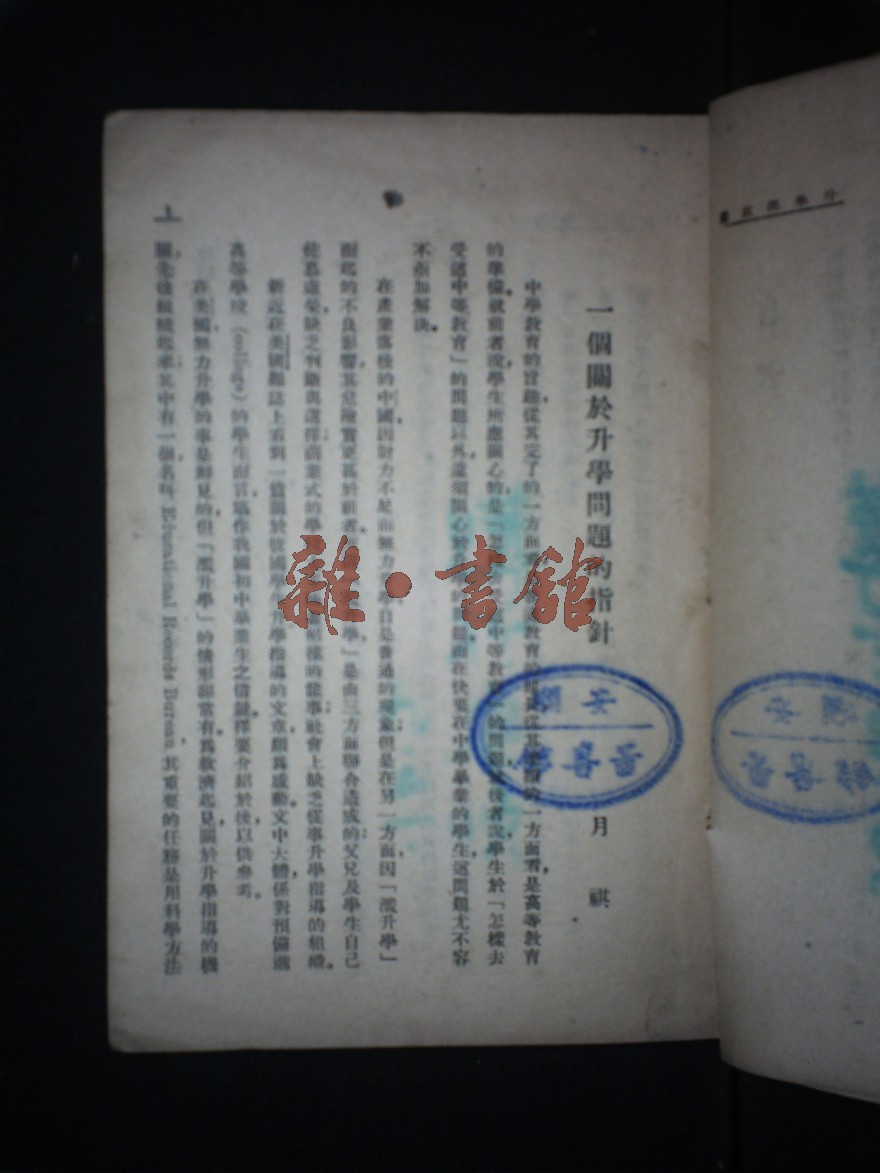 一個關於升學問題的指針
月祺
中學教育的旨趣從其完了的一方面
教育的
從其
的一方面看是高等教育
的準備就前者說學生所應關心的是「怎
中等教育」的問題
後者說學生於「怎樣去
受這中等教育」的問題以外還須關心於
題而在快要在中學畢業的學生這問題尤不容
不亟加解決。
在產業落後的中國因財力不足而無力
自是普通的現象但是在另一方面因「濫升學」
而起的不良影響其危險實更甚於前者
學」是由三方面聯合造成的父兄及學生自己
徒慕虛榮缺乏判斷與選擇商業式的學
社會上缺乏從事升學指導的組織。
新近在美國雜誌上看到一篇關於彼國學
升學指導的文章頗為感動文中大體係對預備進
高等學校(college)的學生而言區作我國初中畢業生之借鏡擇要介紹於後以供參考。
在美國無力升學的事是鮮見的但「濫升學」的情形卻常有為救濟起見關於升學指導的機
關先後組織起來其中有一個名叫 Educational Records Bureau, 其重要的任務是用科學方法
1
升學
安
圖書館
雜·書館